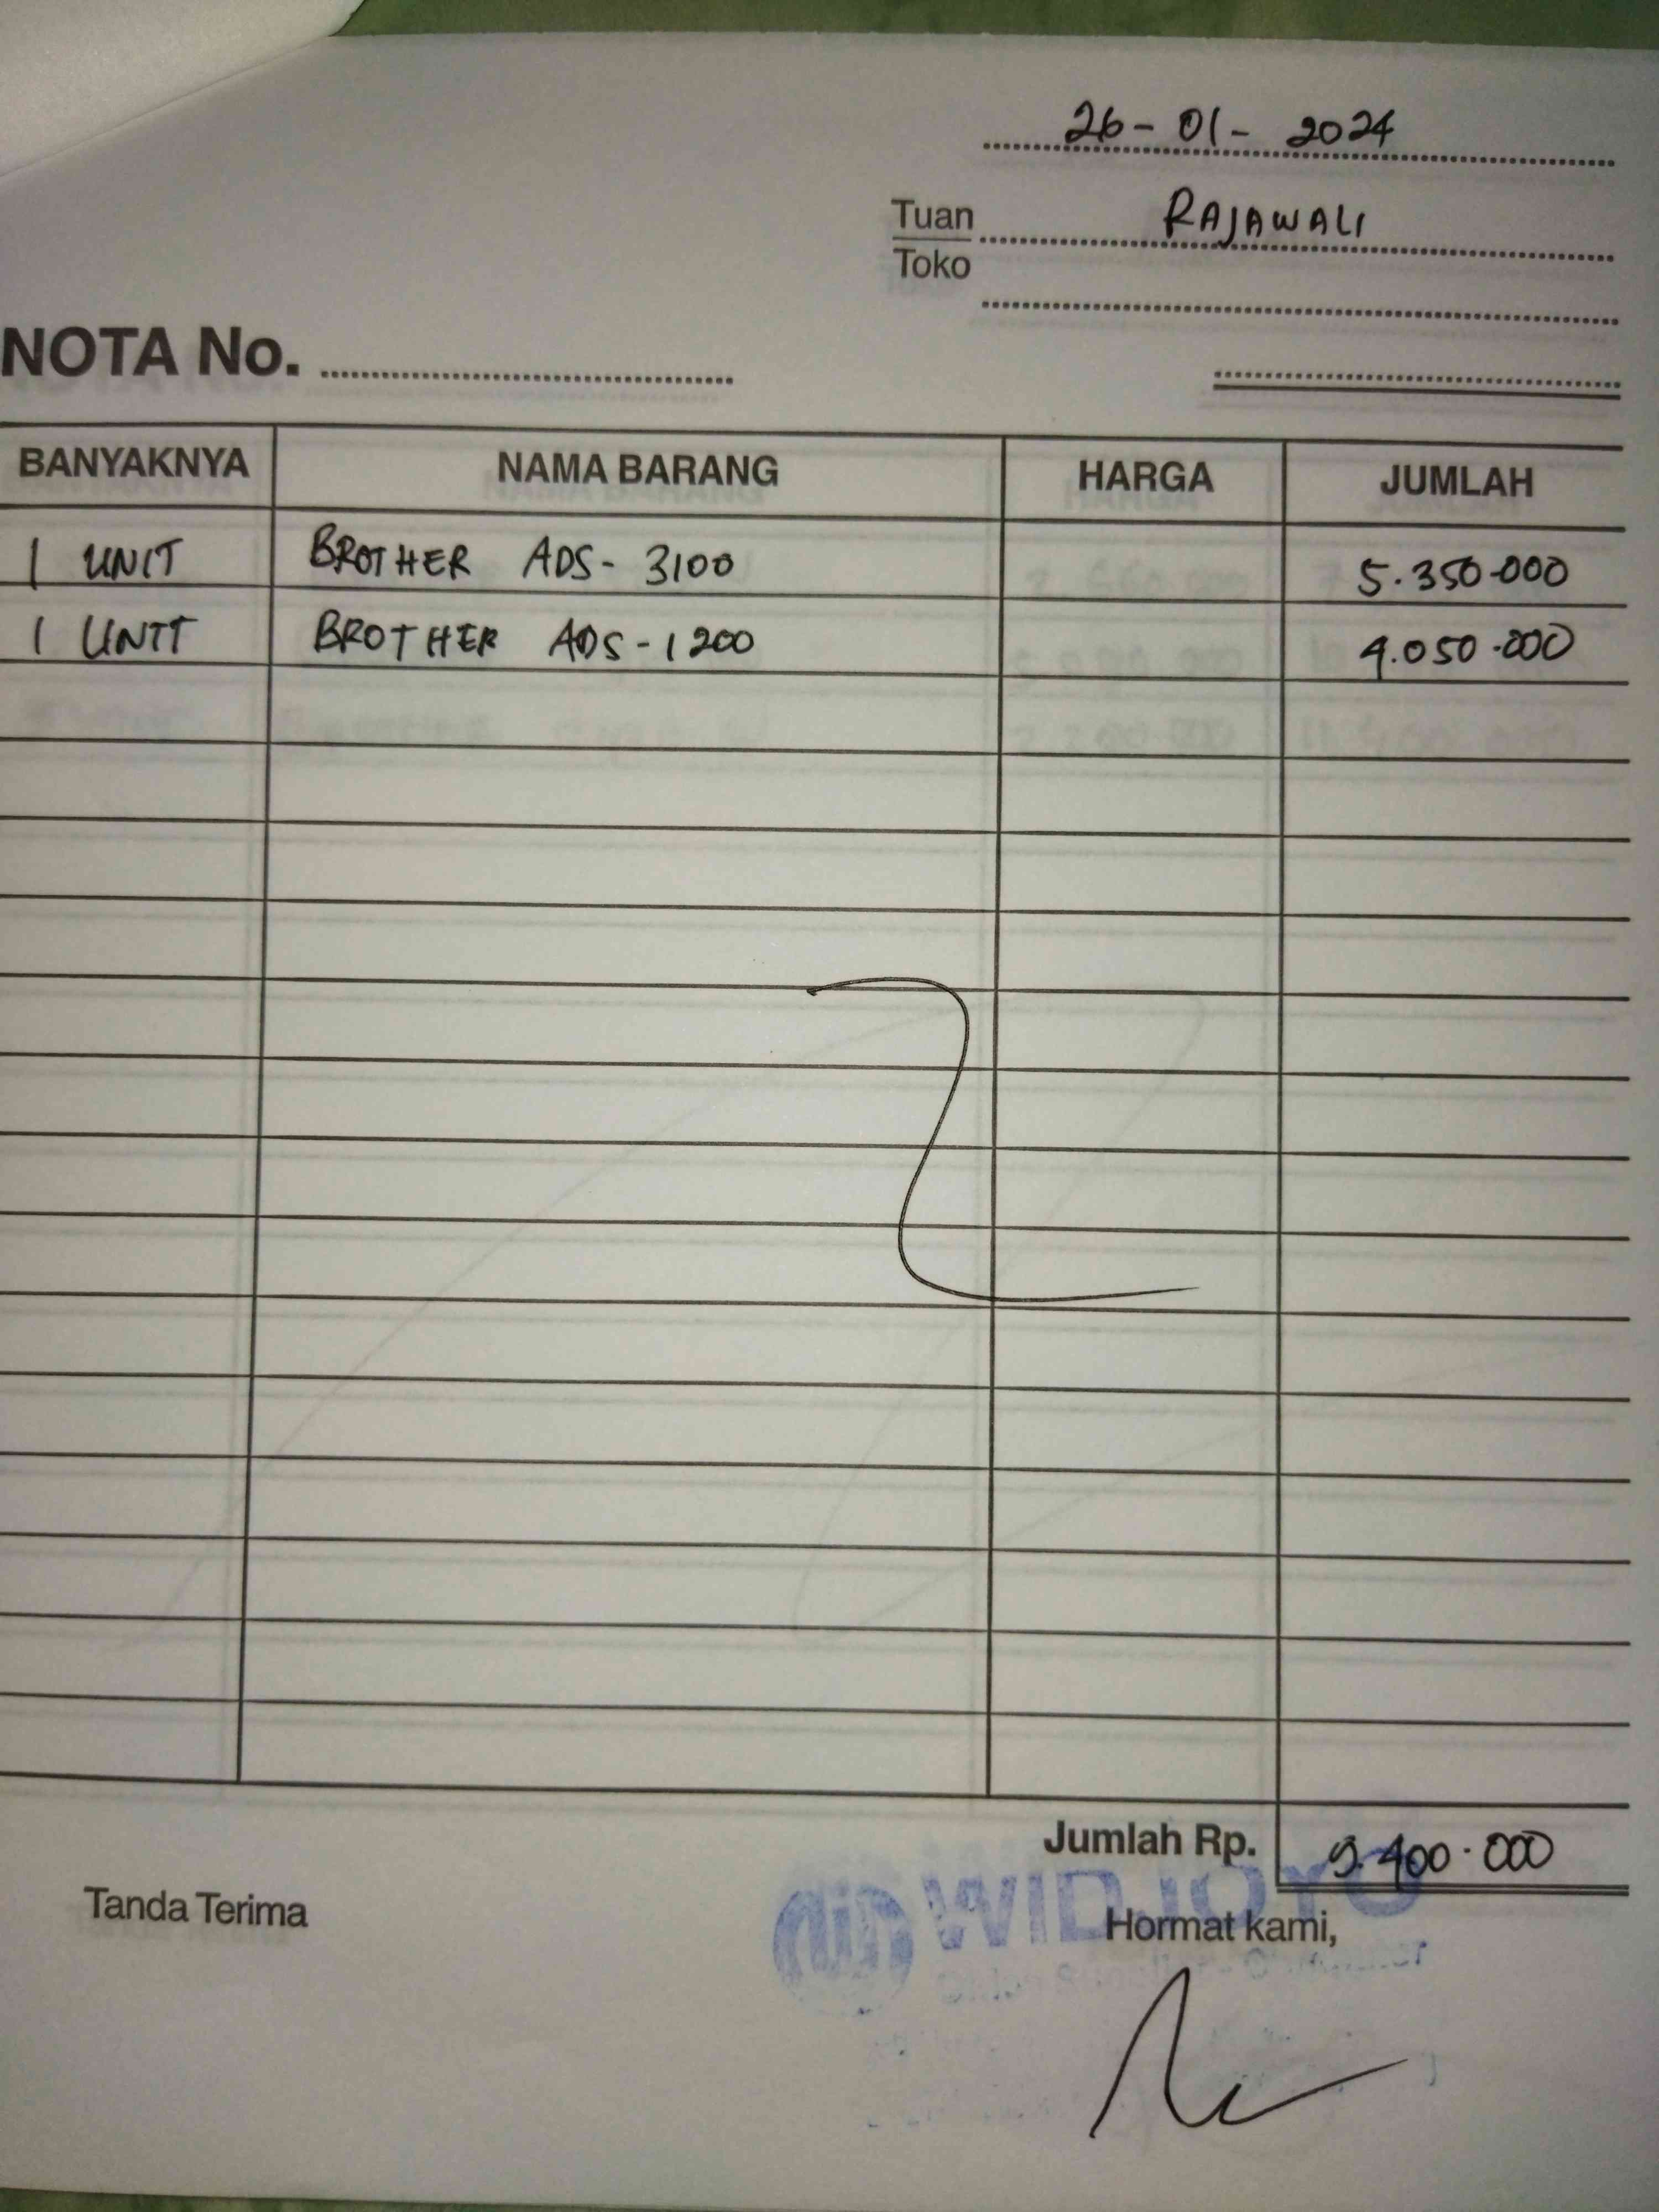 26-01-2024
Tuan RAJAWALI
Toko
NOTA No.
BANYAKNYA NAMA BARANG HARGA JUMLAH
1 UNIT BROTHER ADS-3100 5.350.000
1 UNIT BROTHER ADS-1200 4.050.000
Jumlah Rp. 9.400.000
WIDJOYO
Tanda Terima Hormat kami,